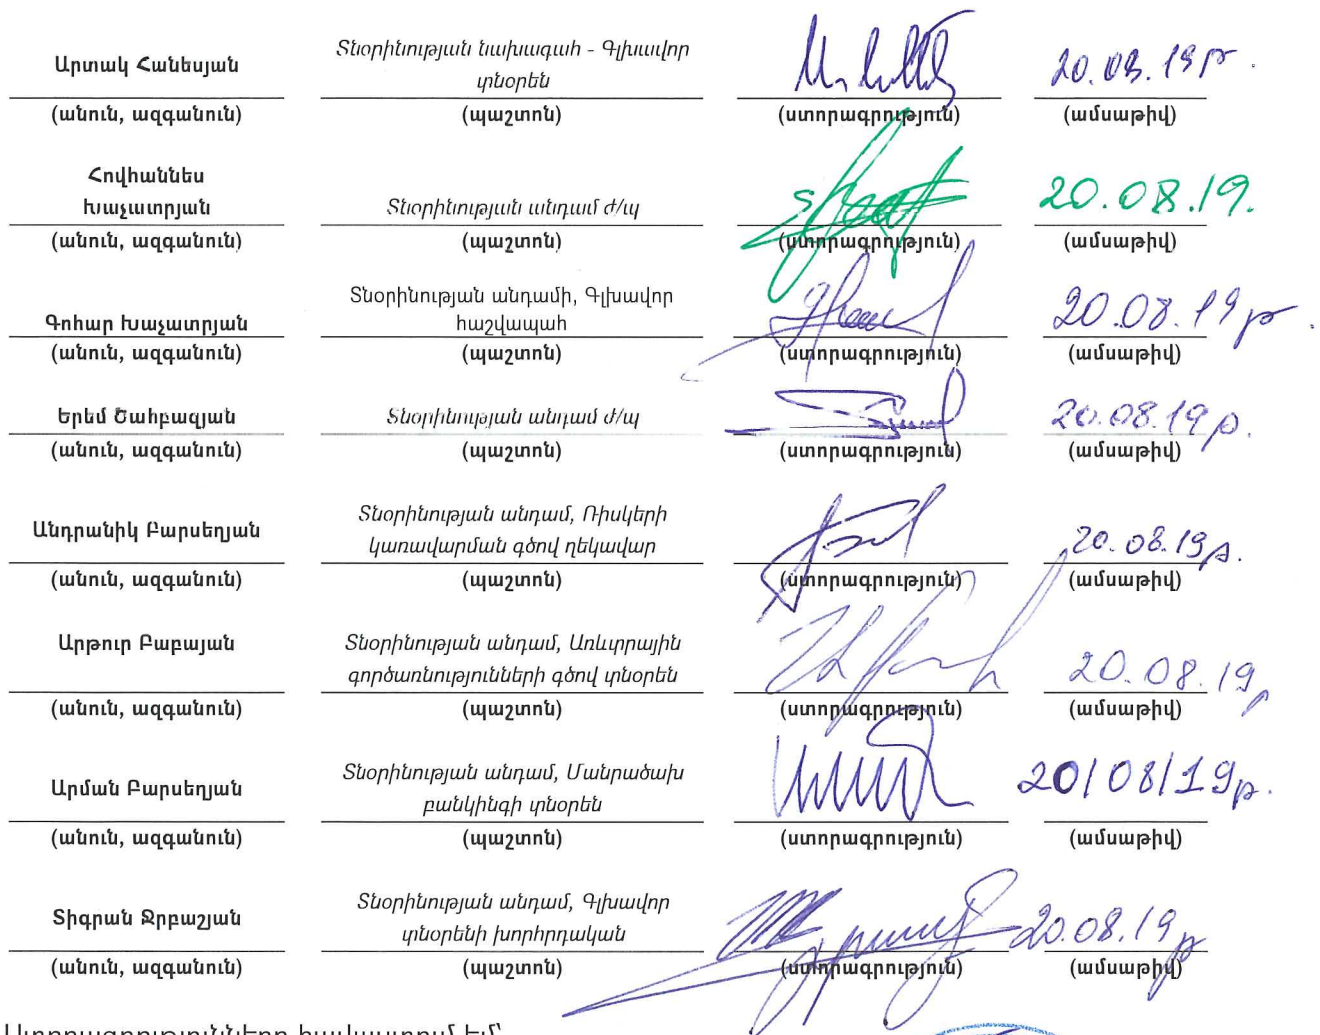 Արտակ Հանեսյան
Տնօրինության նախագահ - Գլխավոր
տնօրեն
20.08.19թ.
(անուն, ազգանուն) (պաշտոն) (ստորագրություն) (ամսաթիվ)
Հովհաննես
Խաչատրյան
Տնօրինության անդամ ժ/պ
20.08.19.
(անուն, ազգանուն) (պաշտոն) (ստորագրություն) (ամսաթիվ)
Գոհար Խաչատրյան
Տնօրինության անդամի, Գլխավոր
հաշվապահ
20.08.19թ.
(անուն, ազգանուն) (պաշտոն) (ստորագրություն) (ամսաթիվ)
Երեմ Շահբազյան
Տնօրինության անդամ ժ/պ
20.08.19թ.
(անուն, ազգանուն) (պաշտոն) (ստորագրություն) (ամսաթիվ)
Անդրանիկ Բարսեղյան
Տնօրինության անդամ, Ռիսկերի
կառավարման գծով ղեկավար
20.08.19թ.
(անուն, ազգանուն) (պաշտոն) (ստորագրություն) (ամսաթիվ)
Արթուր Բաբայան
Տնօրինության անդամ, Առևտրային
գործառնությունների գծով տնօրեն
20.08.19թ
(անուն, ազգանուն) (պաշտոն) (ստորագրություն) (ամսաթիվ)
Արման Բարսեղյան
Տնօրինության անդամ, Մանրածախ
բանկինգի տնօրեն
20/08/19թ.
(անուն, ազգանուն) (պաշտոն) (ստորագրություն) (ամսաթիվ)
Տիգրան Ջրբաշյան
Տնօրինության անդամ, Գլխավոր
տնօրենի խորհրդական
20.08.19թ
(անուն, ազգանուն) (պաշտոն) (ստորագրություն) (ամսաթիվ)
Ստորագրությունները հավաստում եմ՝